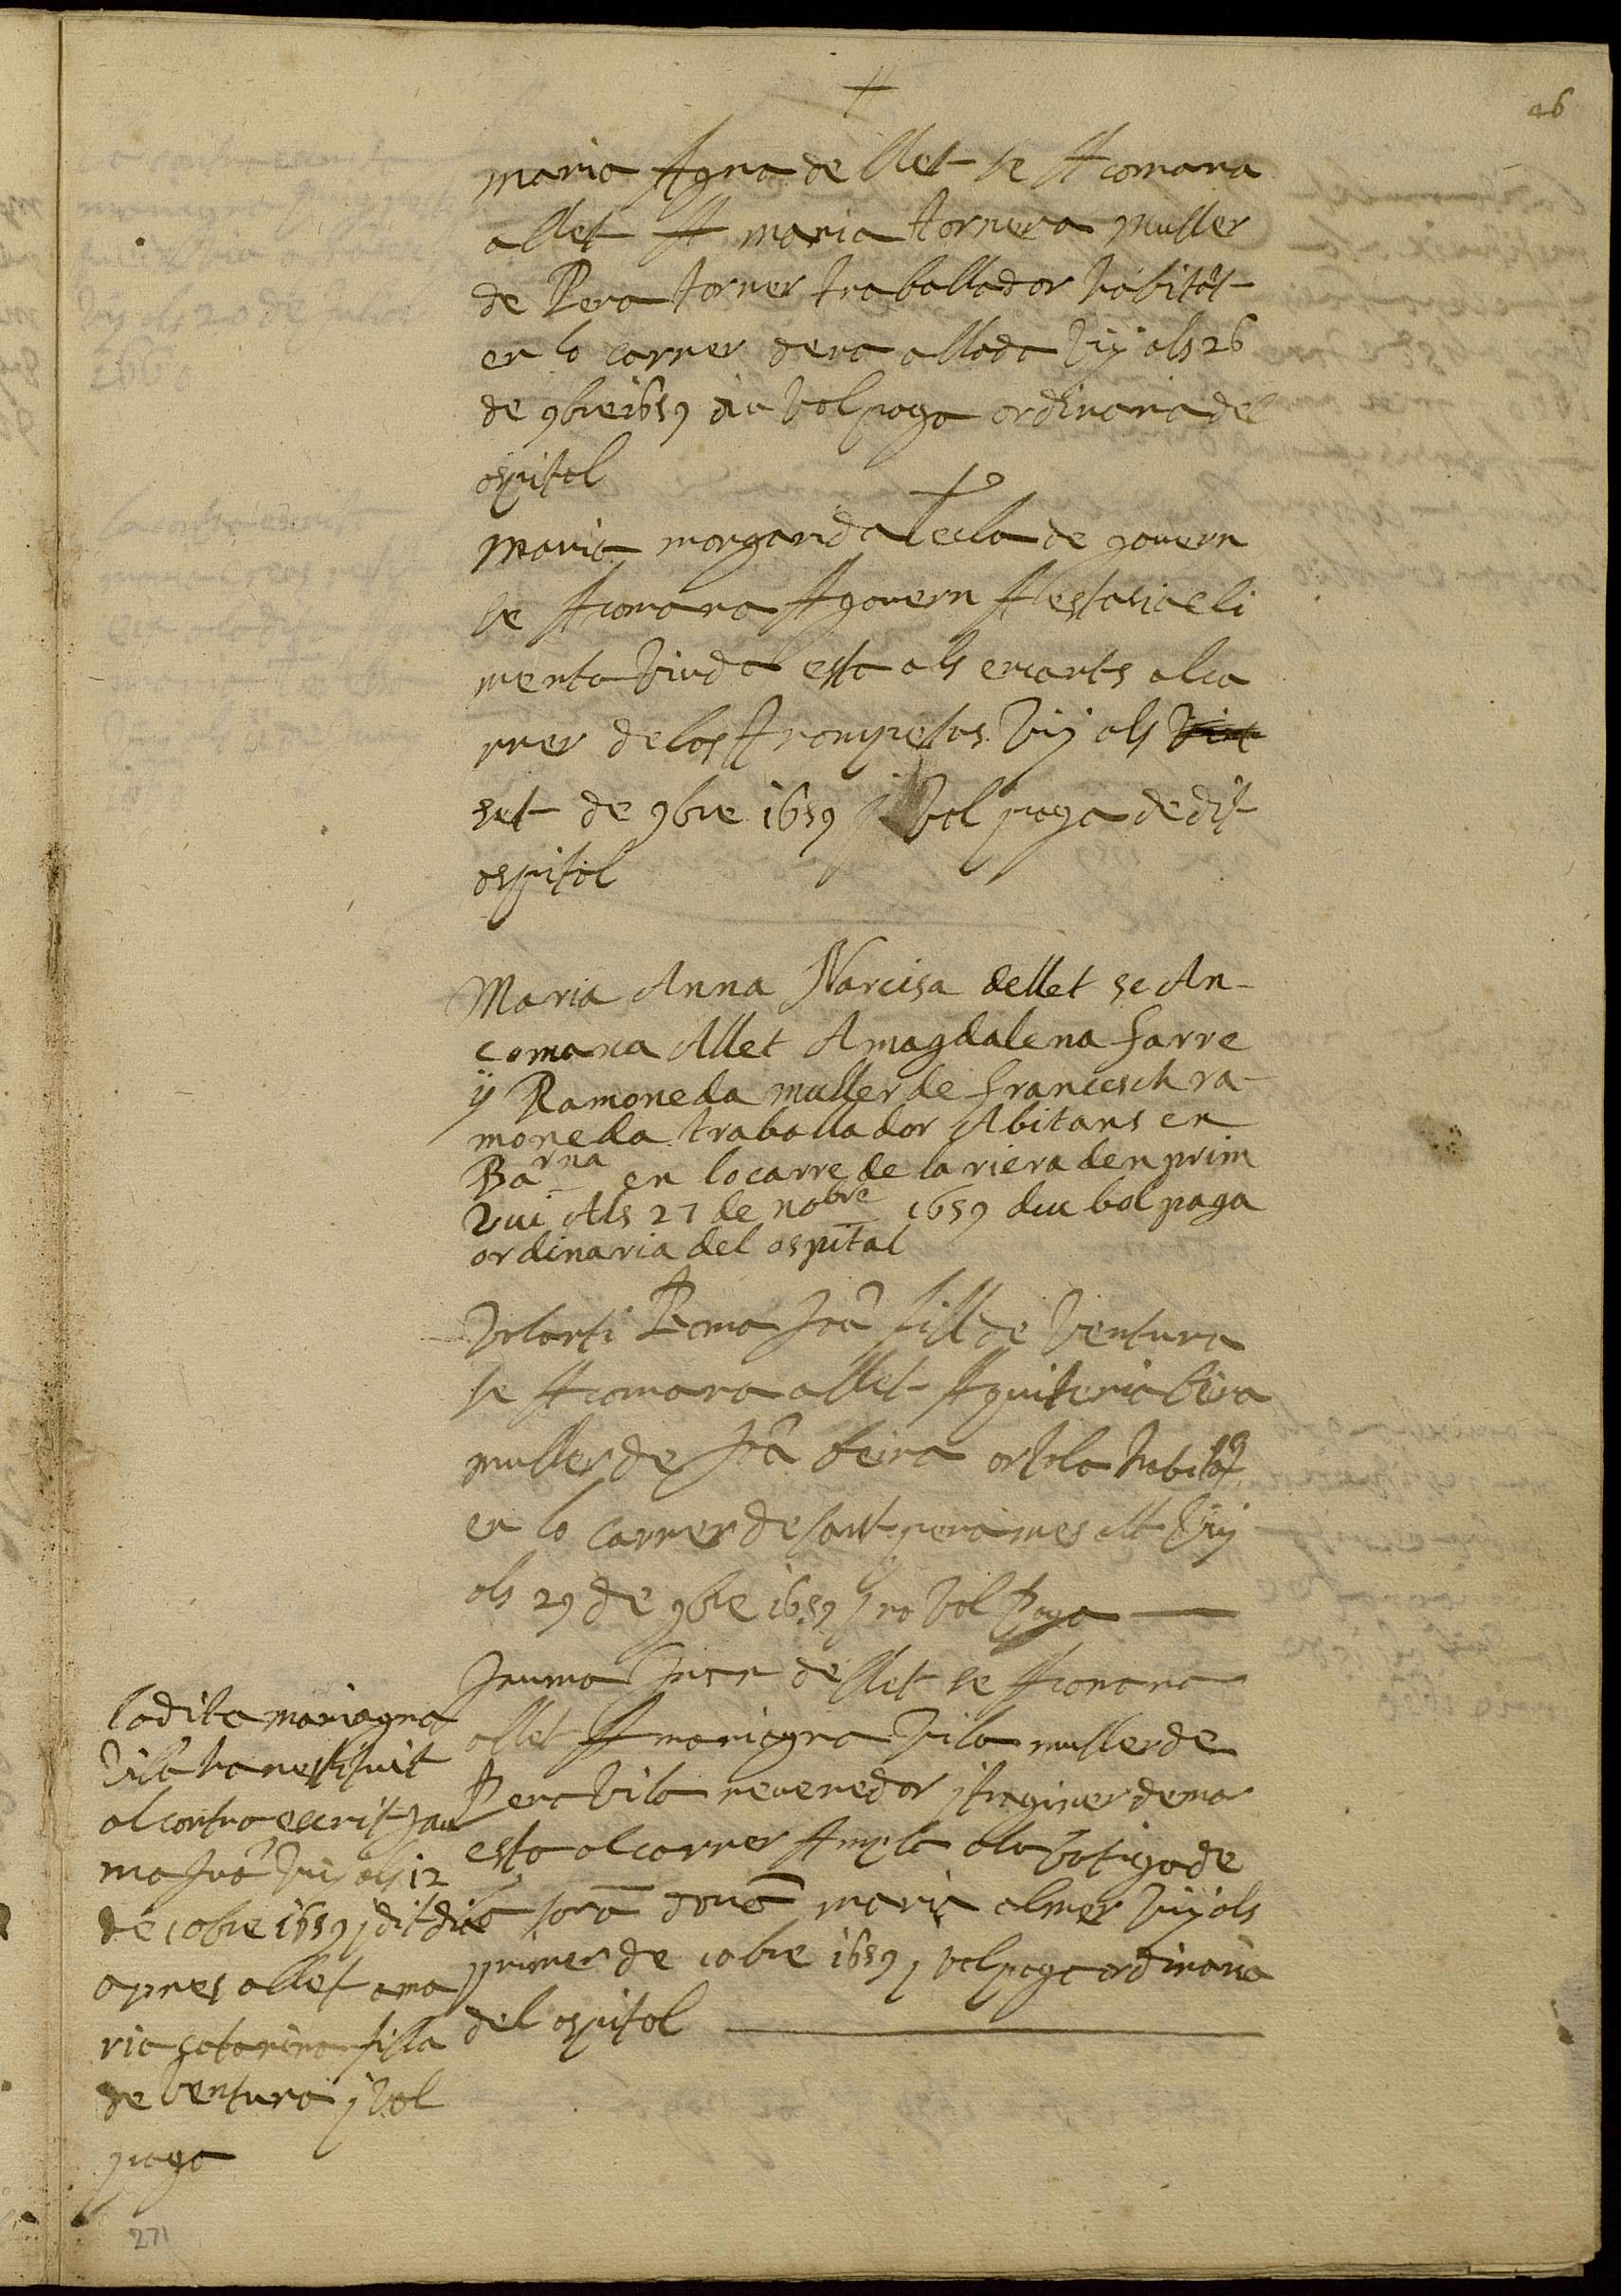 46
maria Agna de llet se Acomana
a llet A maria tornera muller
de Pera torner traballador habitat
en lo carrer dena allada Vuy als 26
de 9bre 1659 diu vol paga ordinaria del
ospital
maria margarida tecla de govern
se Acomana A govern A estasia cli
menta viuda esta als encants al ca
rrer de los trompetas Vuy als vint
set de 9bre 1659 j vol paga de dit
ospital
Maria Anna Narcisa dellet se An-
comana Allet A magdalena farre
ÿ Ramoneda muller de francesch ra-
moneda traballador Abitans en
Barna en lo carre de la riera den prim
Vui Als 27 de nobre 1659 diu bol paga
ordinaria del ospital
Marti Poma Jua fill de ventura
se Acomana a llet A quiteria beira
muller de Jua beira ortola habitat
en lo carrer de sant pera mes alt Vuy
als 29 de 9bre 1659 j no vol Paga
Jauma Juan de llet se Acomana
allet A mariagna Vila muller de
Pera vila revenedor j traginer de mar
esta al carrer Ample a la botiga de
la sora dona maria almer Vuy als
primer de 10bre 1659 j vol paga ordinaria
del ospital
la dita mariagna
Vila ha restituit
al contra escrit Jau
ma Jua Vuy als 12
de 10bre 1659 j dit dia
a pres a llet a ma
ria catarina filla
de ventura j vol
paga
271